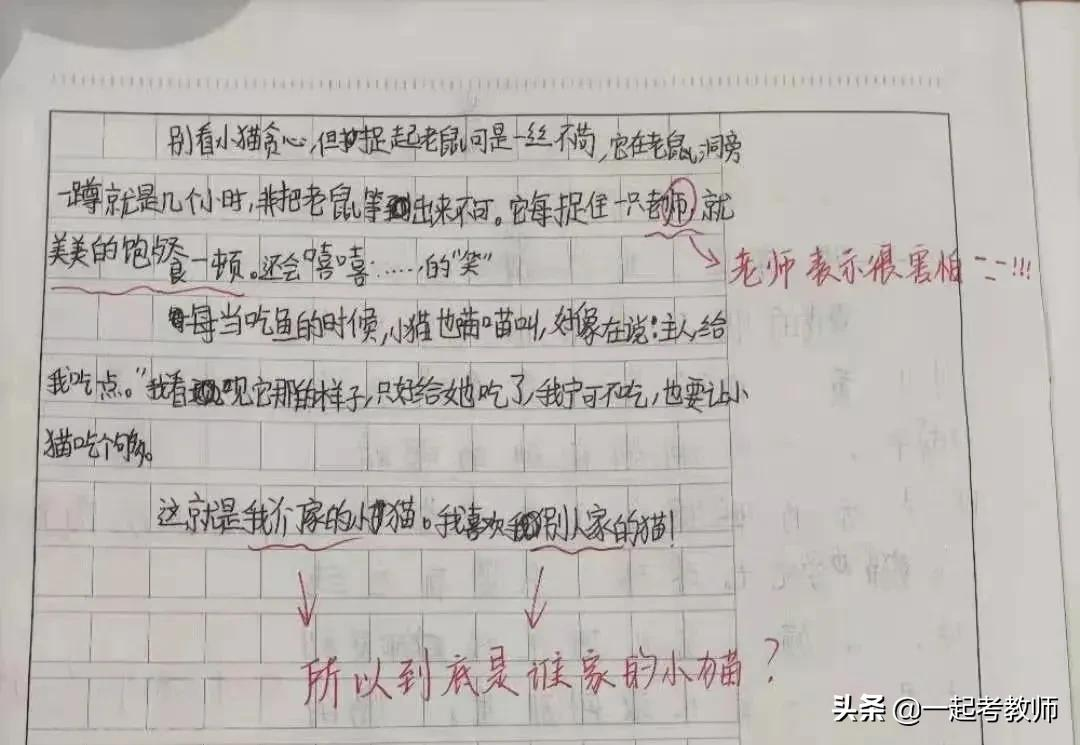 别看小猫贪心,但捉起老鼠可是一丝不苟,它在老鼠洞旁
一蹲就是几个小时,非把老鼠等到出来不可。它每捉住一只老师,就
美美的饱餐一顿。还会"嘻嘻……的"笑"
老师表示很害怕---!!!
每当吃鱼的时候,小猫也喵喵叫,好像在说:主人,给
我吃点。"我看见它那的样子,只好给她吃了,我宁可不吃,也要让小
猫吃个够。
这就是我们家的小猫。我喜欢别人家的猫!
所以到底是谁家的小猫?
头条 @一起考教师